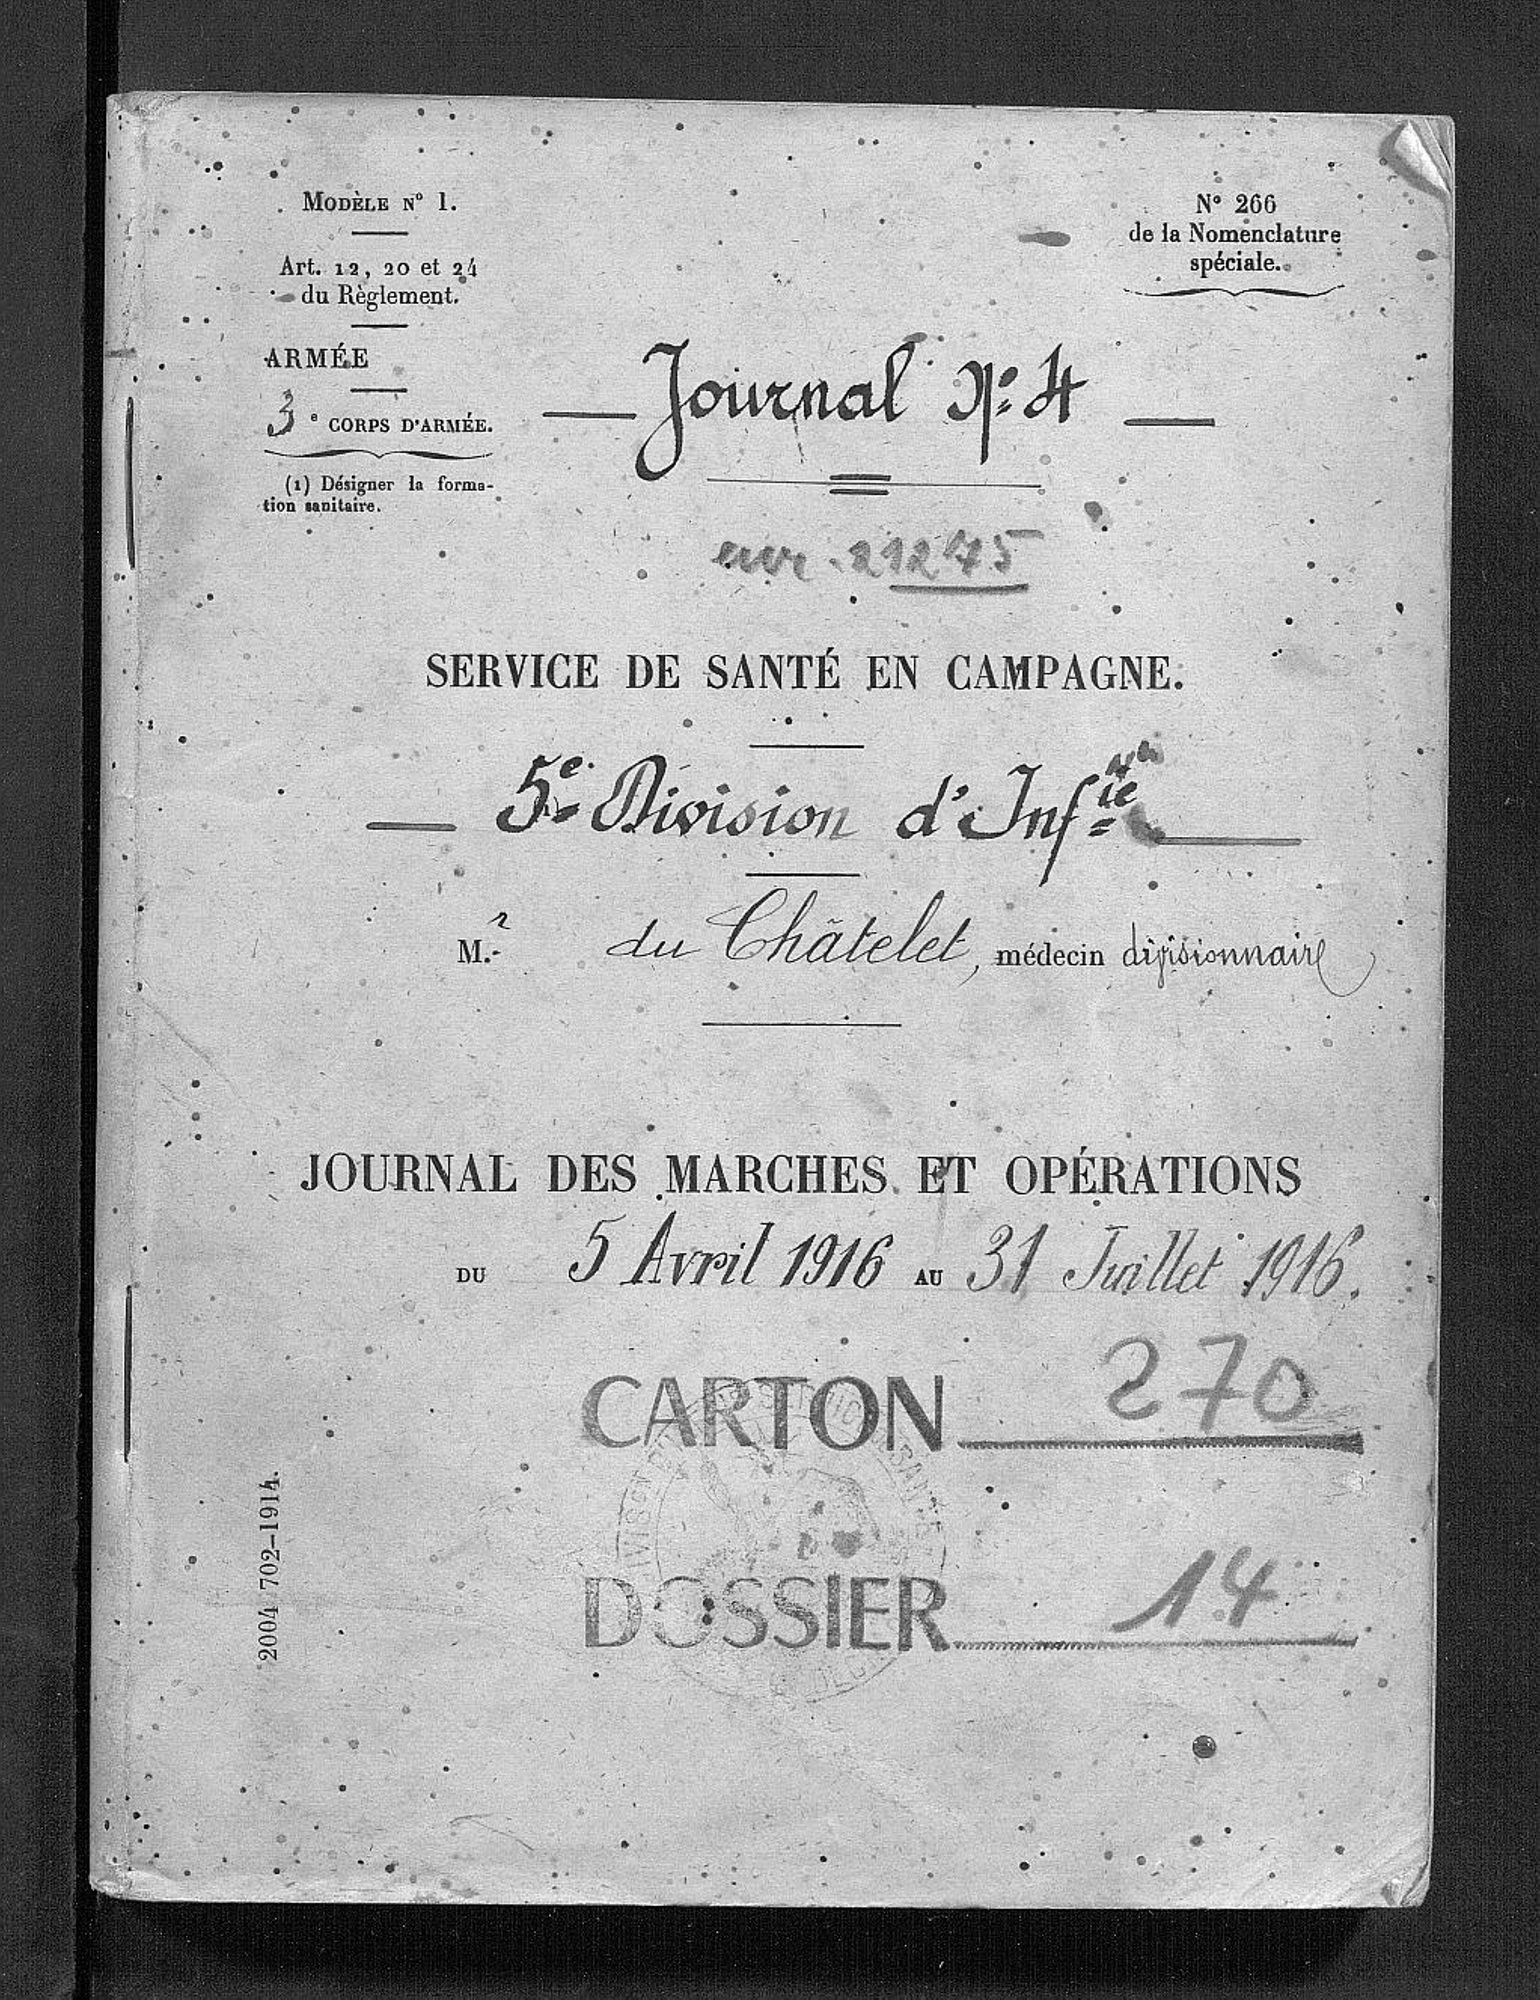 MODÈLE N° 1.
Art. 12, 20 et 24
du Règlement.
ARMÉE
3e CORPS D'ARMÉE.
(1) Désigner la forma-
tion sanitaire.
N° 266
de la Nomenclature
spéciale.
Journal N° 4
21275
SERVICE DE SANTÉ EN CAMPAGNE.
5e Division d'Infie
M.r du Châtelet, médecin divisionnaire
JOURNAL DES MARCHES ET OPÉRATIONS
DU 5 Avril 1916 AU 31 Juillet 1916.
CARTON 270
DOSSIER 14
2004 702-1914.